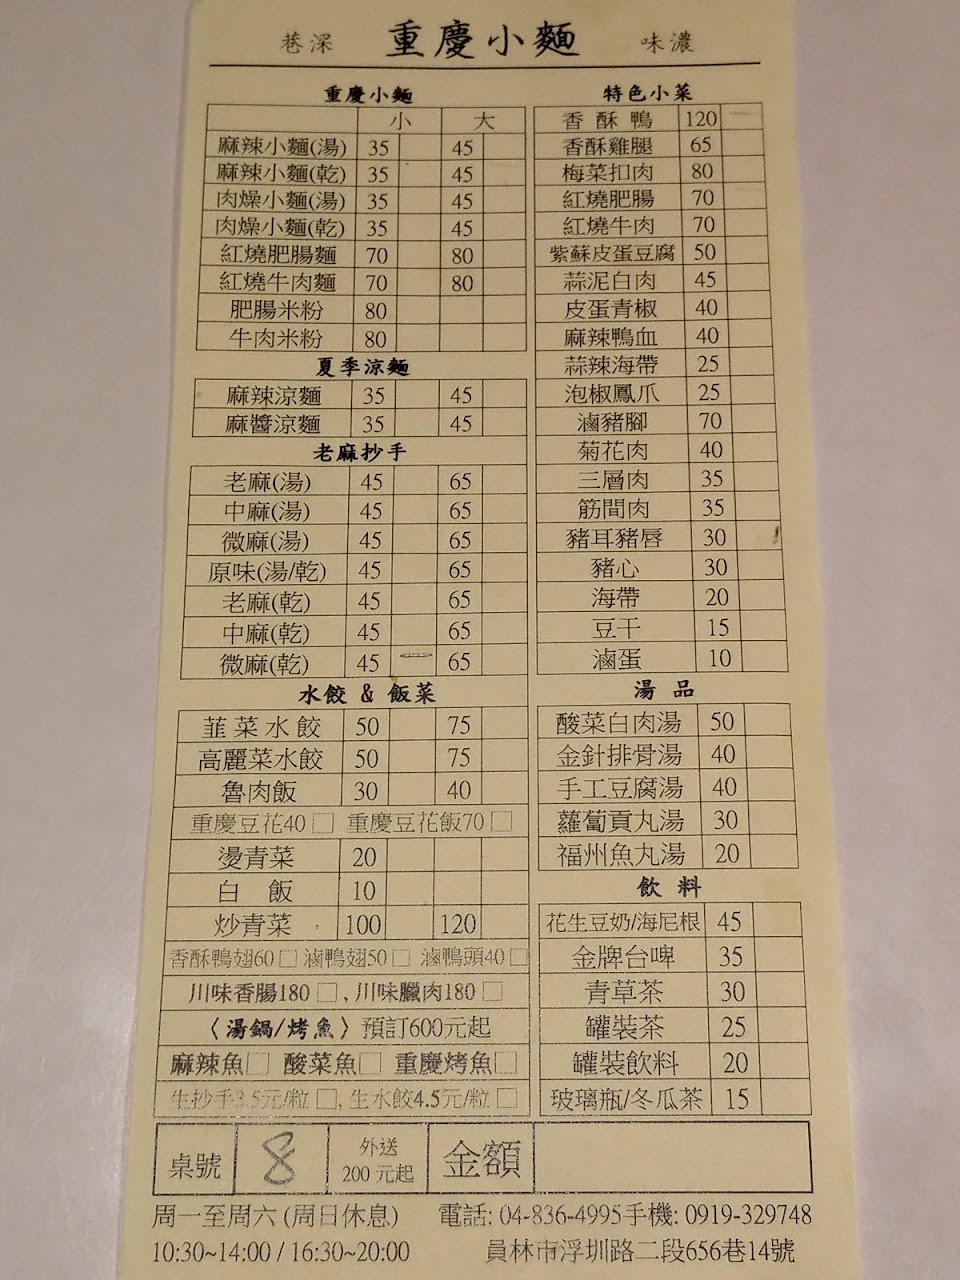 巷深 重慶小麵 味濃
重慶小麵
小 大
麻辣小麵(湯) 35 45
麻辣小麵(乾) 35 45
肉燥小麵(湯) 35 45
肉燥小麵(乾) 35 45
紅燒肥腸麵 70 80
紅燒牛肉麵 70 80
肥腸米粉 80
牛肉米粉 80
夏季涼麵
麻辣涼麵 35 45
麻醬涼麵 35 45
老麻抄手
老麻(湯) 45 65
中麻(湯) 45 65
微麻(湯) 45 65
原味(湯/乾) 45 65
老麻(乾) 45 65
中麻(乾) 45 65
微麻(乾) 45 65
水餃 & 飯菜
韮菜水餃 50 75
高麗菜水餃 50 75
魯肉飯 30 40
重慶豆花40 □ 重慶豆花飯70 □
燙青菜 20
白 飯 10
炒青菜 100 120
香酥鴨翅60 □ 滷鴨翅50 □ 滷鴨頭40 □
川味香腸180 □ , 川味臘肉180 □
〈湯鍋/烤魚〉預訂600元起
麻辣魚□ 酸菜魚□ 重慶烤魚□
生抄手3.5元/粒 □, 生水餃4.5元/粒 □
特色小菜
香酥鴨 120
香酥雞腿 65
梅菜扣肉 80
紅燒肥腸 70
紅燒牛肉 70
紫蘇皮蛋豆腐 50
蒜泥白肉 45
皮蛋青椒 40
麻辣鴨血 40
蒜辣海帶 25
泡椒鳳爪 25
滷豬腳 70
菊花肉 40
三層肉 35
筋間肉 35
豬耳豬唇 30
豬心 30
海帶 20
豆干 15
滷蛋 10
湯 品
酸菜白肉湯 50
金針排骨湯 40
手工豆腐湯 40
蘿蔔貢丸湯 30
福州魚丸湯 20
飲 料
花生豆奶/海尼根 45
金牌台啤 35
青草茶 30
罐裝茶 25
罐裝飲料 20
玻璃瓶/冬瓜茶 15
桌號 8 外送 200 元起 金額
周一至周六 (周日休息) 電話: 04-836-4995手機: 0919-329748
10:30~14:00 / 16:30~20:00 員林市浮圳路二段656巷14號